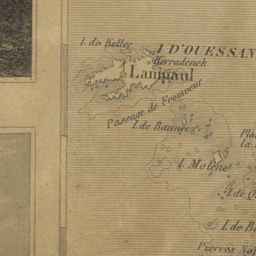 I. de Beller
I. D'OUESSAN
Lampaul
Passage de Fromveur
I. de Bannec
I. Molène
I. de
I. de B
Pierres